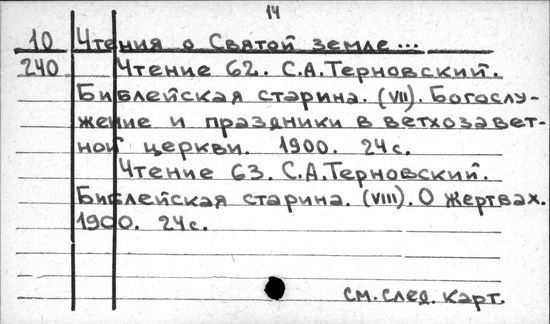 14
10 Чтения о Святой земле...
240 Чтение 62. С.А.Терновский.
Библейская старина. (VII). Богослу-
жение и праздники в ветхозавет-
ной церкви. 1900. 24с.
Чтение 63. С.А.Терновский.
Библейская старина. (VIII). О жертвах.
1900. 24с.
см. след. карт.